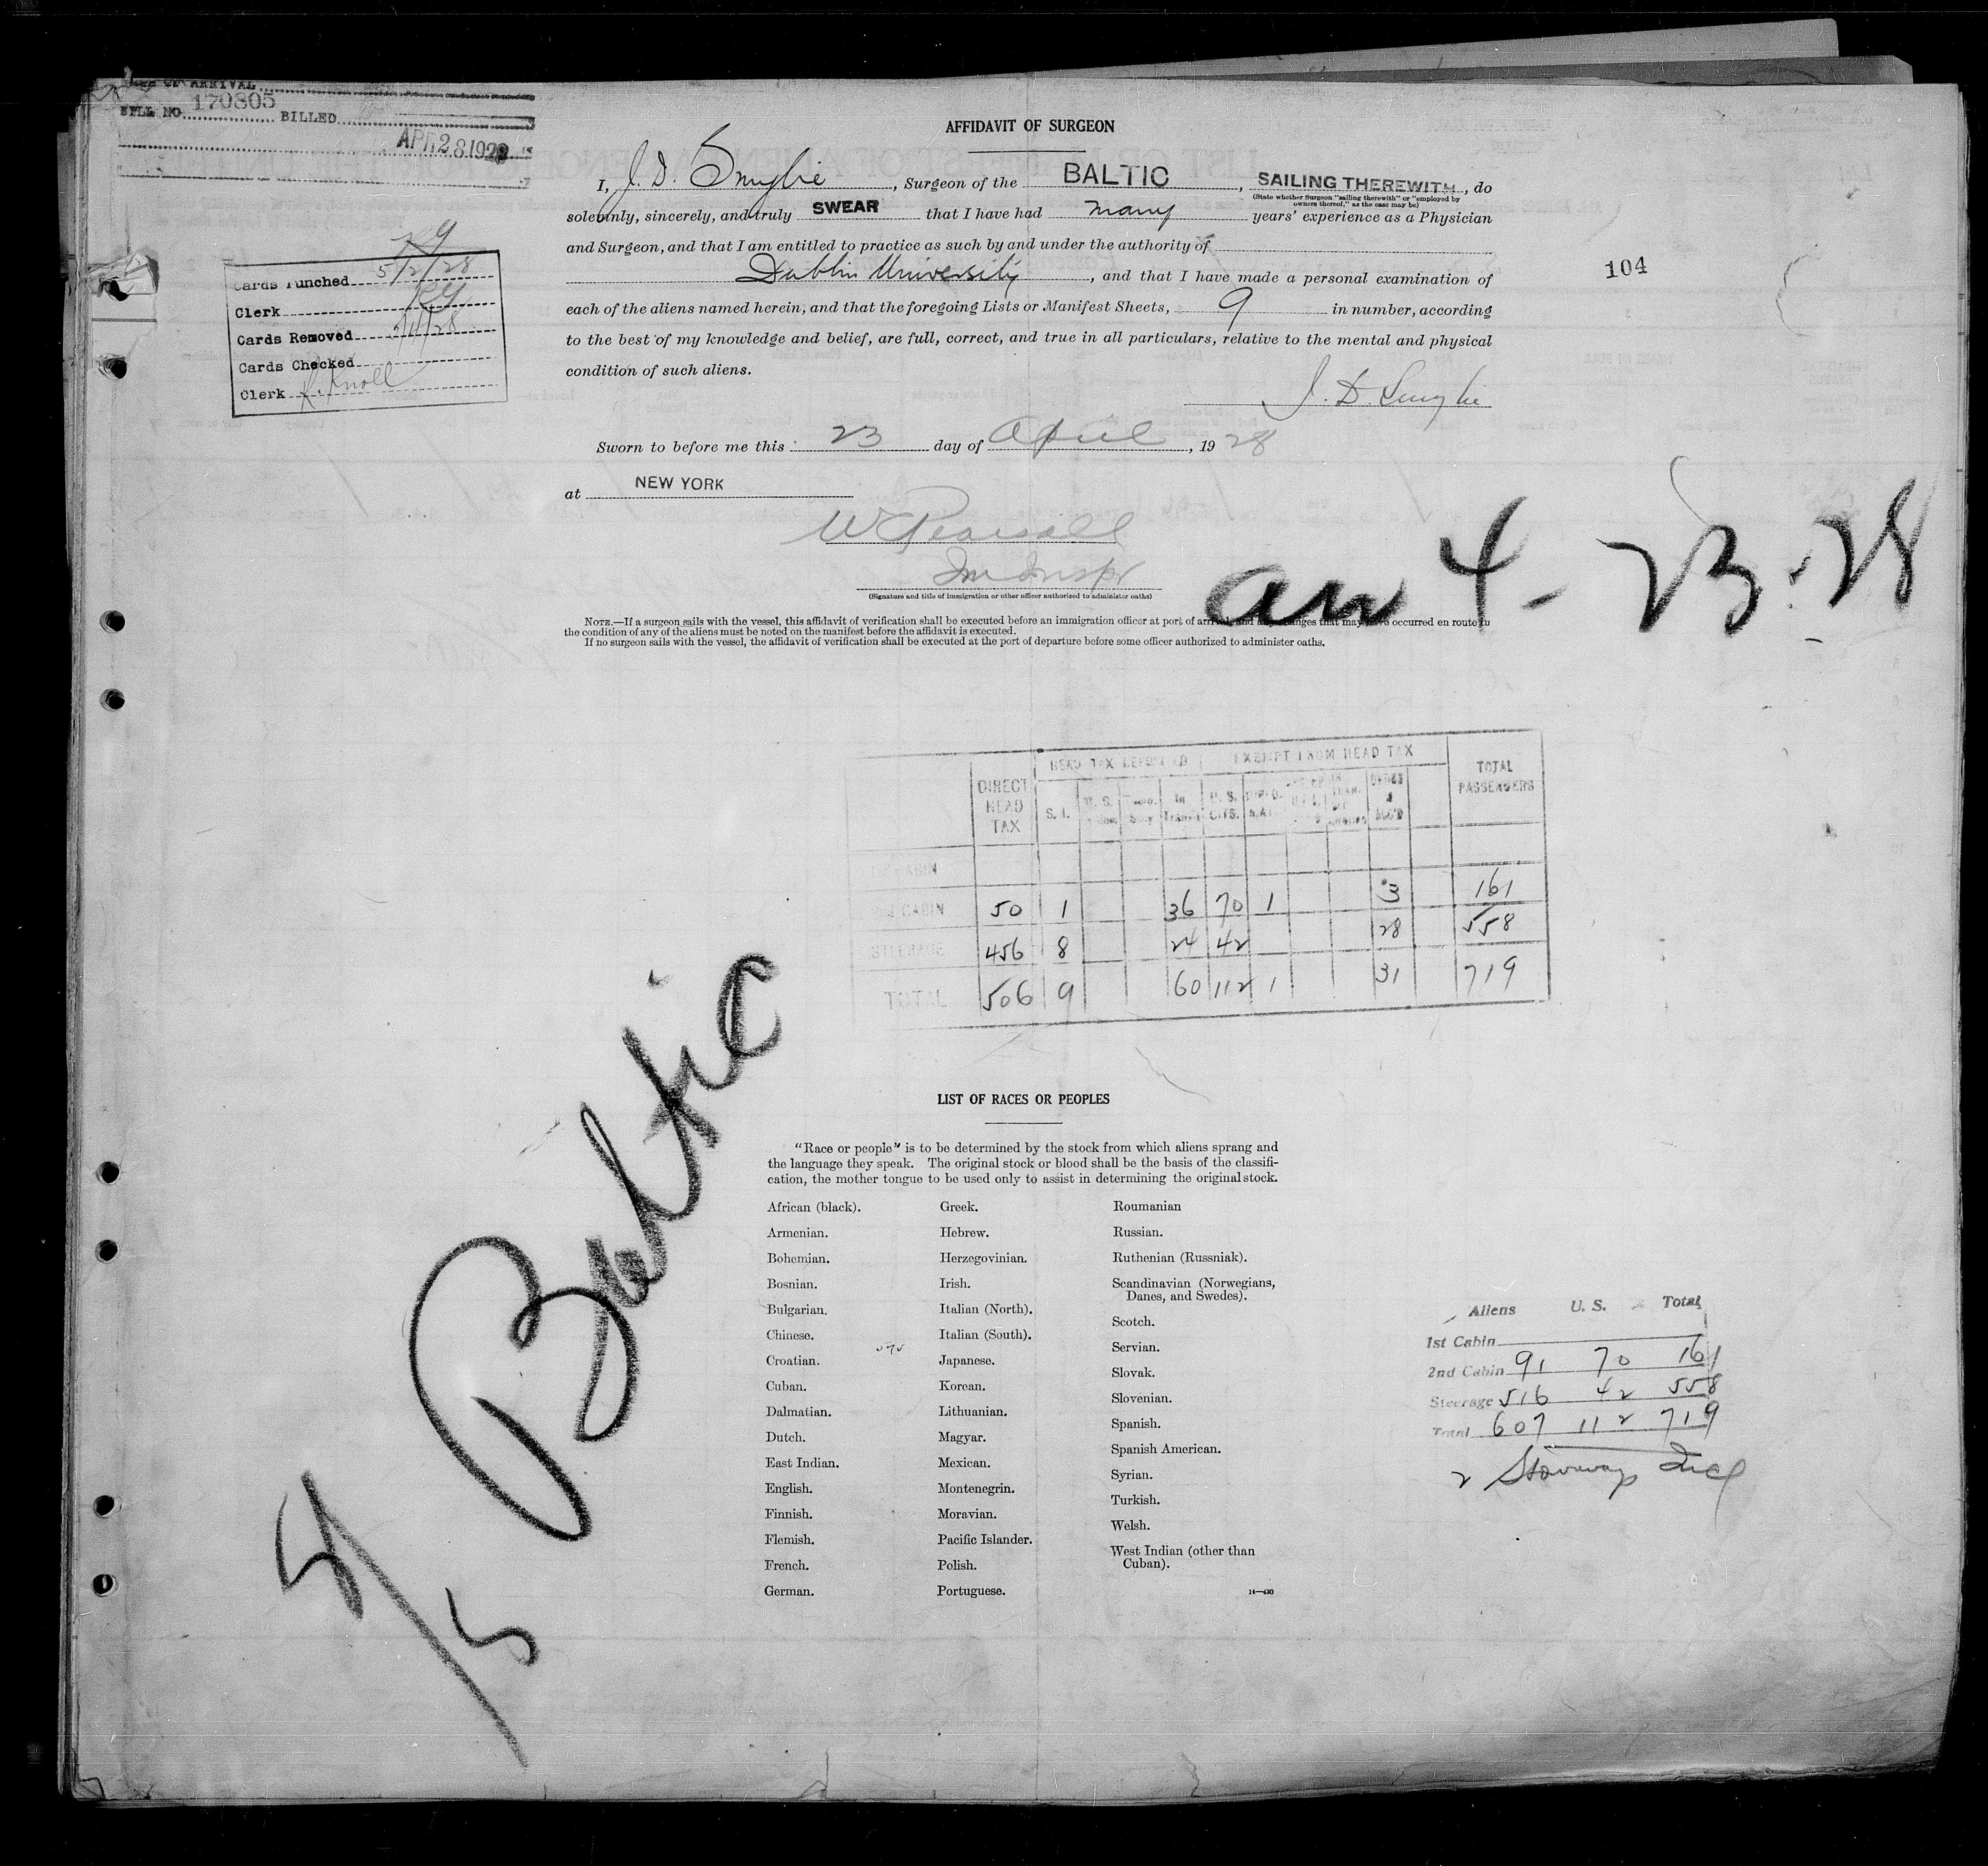 OF ARRIVAL
BILL NO. 170805 BILLED
APR 28 1928
AFFIDAVIT OF SURGEON
I, J. D. Smylie, Surgeon of the BALTIC, SAILING THEREWITH, do
(State whether Surgeon "sailing therewith" or "employed by
owners thereof," as the case may be)
solemnly, sincerely, and truly SWEAR that I have had many years' experience as a Physician
and Surgeon, and that I am entitled to practice as such by and under the authority of
Dublin University, and that I have made a personal examination of
each of the aliens named herein, and that the foregoing Lists or Manifest Sheets, 9 in number, according
to the best of my knowledge and belief, are full, correct, and true in all particulars, relative to the mental and physical
condition of such aliens.
J. D. Smylie
104
Cards Punched 5/2/28
Clerk
Cards Removed
Cards Checked
Clerk K. Knoll
Sworn to before me this 23 day of April, 1928
at NEW YORK
W Pearsall
Im Inspr
(Signature and title of immigration or other officer authorized to administer oaths)
arr 4-23-28
NOTE.—If a surgeon sails with the vessel, this affidavit of verification shall be executed before an immigration officer at port of arrival, and any changes that may have occurred en route in
the condition of any of the aliens must be noted on the manifest before the affidavit is executed.
If no surgeon sails with the vessel, the affidavit of verification shall be executed at the port of departure before some officer authorized to administer oaths.
HEAD TAX EXEMPT FROM HEAD TAX
DIRECT HEAD TAX S. I. U. S. In Transit U. S. CITS. TOTAL PASSENGERS
CABIN
CABIN 50 1 36 70 1 3 161
STEERAGE 456 8 24 42 28 558
TOTAL 506 9 60 112 1 31 719
Baltic
5/15
LIST OF RACES OR PEOPLES
"Race or people" is to be determined by the stock from which aliens sprang and
the language they speak. The original stock or blood shall be the basis of the classifi-
cation, the mother tongue to be used only to assist in determining the original stock.
African (black).
Armenian.
Bohemian.
Bosnian.
Bulgarian.
Chinese.
Croatian.
Cuban.
Dalmatian.
Dutch.
East Indian.
English.
Finnish.
Flemish.
French.
German.
Greek.
Hebrew.
Herzegovinian.
Irish.
Italian (North).
Italian (South).
Japanese.
Korean.
Lithuanian.
Magyar.
Mexican.
Montenegrin.
Moravian.
Pacific Islander.
Polish.
Portuguese.
Roumanian
Russian.
Ruthenian (Russniak).
Scandinavian (Norwegians,
Danes, and Swedes).
Scotch.
Servian.
Slovak.
Slovenian.
Spanish.
Spanish American.
Syrian.
Turkish.
Welsh.
West Indian (other than
Cuban).
14—430
Aliens U. S. Total
1st Cabin
2nd Cabin 91 70 161
Steerage 516 42 558
Total 607 112 719
2 Stowaways Incl